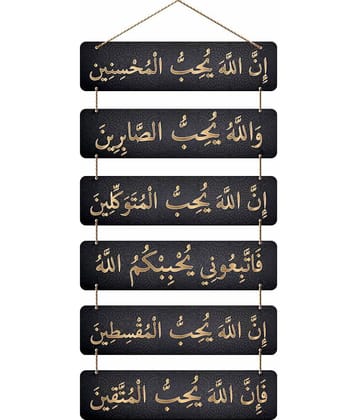 إِنَّ اللَّهَ يُحِبُّ الْمُحْسِنِينَ
وَاللَّهُ يُحِبُّ الصَّابِرِينَ
إِنَّ اللَّهَ يُحِبُّ الْمُتَوَكِّلِينَ
فَاتَّبِعُونِي يُحْبِبْكُمُ اللَّهُ
إِنَّ اللَّهَ يُحِبُّ الْمُقْسِطِينَ
فَإِنَّ اللَّهَ يُحِبُّ الْمُتَّقِينَ